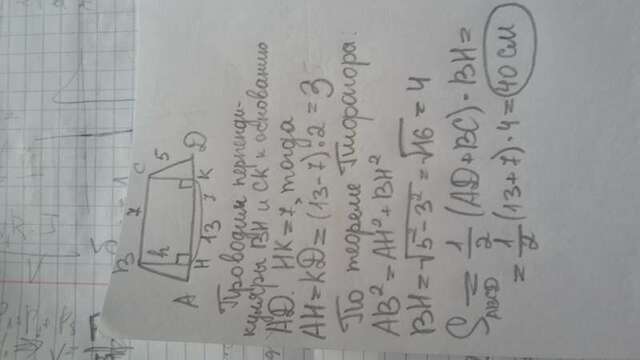 B 7 C
h 5
A H 13 7 K D
Проводим перпенди-
куляры BH и CK к основанию
AD. HK=7, тогда
AH=KD=(13-7):2=3
По теореме Пифагора:
AB²=AH²+BH²
BH=√5²-3²=√16=4
S_ABCD = 1/2 (AD+BC)·BH=
= 1/2 (13+7)·4=40 см